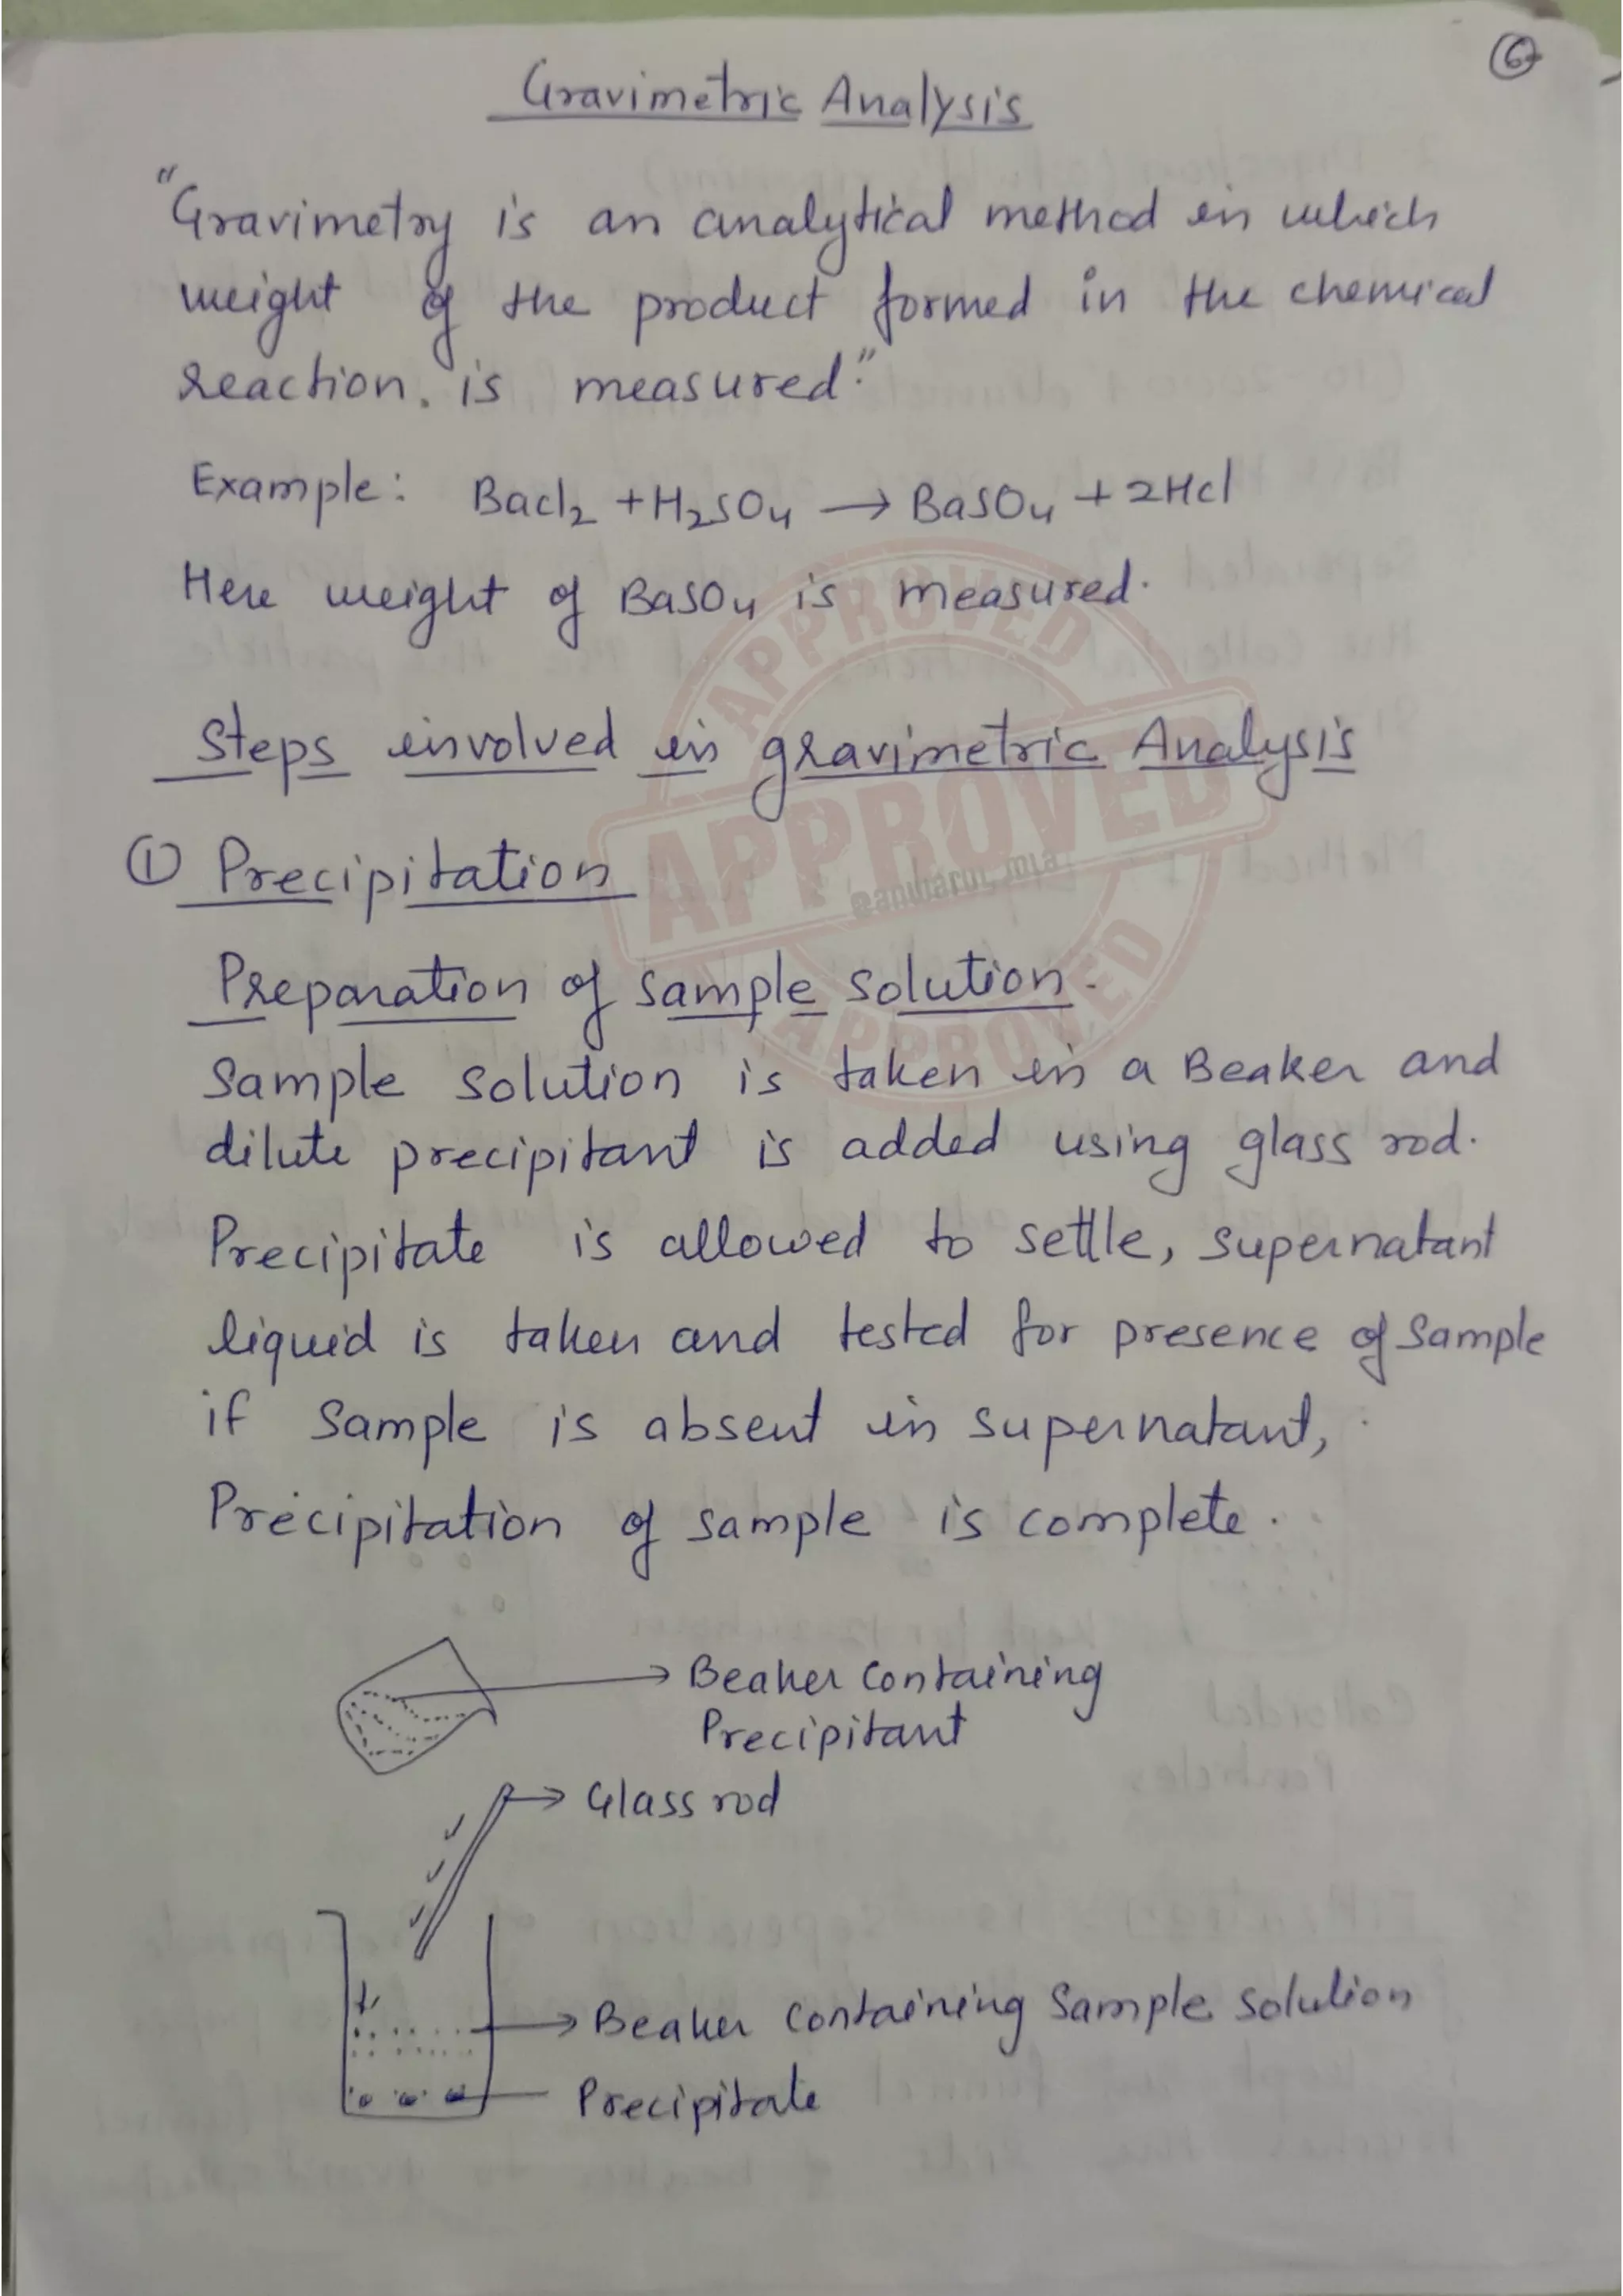 6
Gravimetric Analysis
"Gravimetry is an analytical method in which
weight of the product formed in the chemical
reaction. is measured."
Example: Bacl2 + H2SO4 → BaSO4 + 2Hcl
Here weight of BaSO4 is measured.
Steps involved in gravimetric Analysis
① Precipitation
Preparation of sample solution.
Sample solution is taken in a Beaker and
dilute precipitant is added using glass rod.
Precipitate is allowed to settle, supernatant
liquid is taken and tested for presence of Sample
if Sample is absent in supernatant,
Precipitation of sample is complete.
Beaker Containing
Precipitant
Glass rod
Beaker Containing Sample Solution
Precipitate
APPROVED
APPROVED
APPROVED